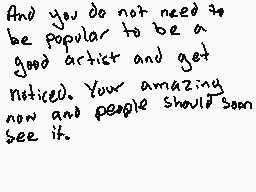 And you do not need to
be popular to be a
good artist and get
noticed. Your amazing
now and people should soon
see it.